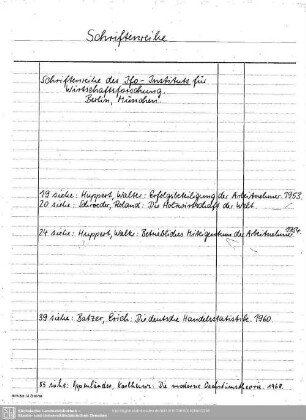 Schriftenreihe
Schriftenreihe des Ifo-Instituts für
Wirtschaftsforschung.
Berlin, München.
19 siehe: Huppert, Walter: Erfolgsbeteiligung der Arbeitnehmer. 1953.
20 siehe: Schroeder, Roland: Die Holzwirtschaft der Welt.
24 siehe: Huppert, Walter: Betriebliches Miteigentum der Arbeitnehmer. 1954.
39 siehe: Batzer, Erich: Die deutsche Handelsstatistik. 1960.
siehe: Oppenländer, Karlheinz: Die moderne Wachstumstheorie. 1968.